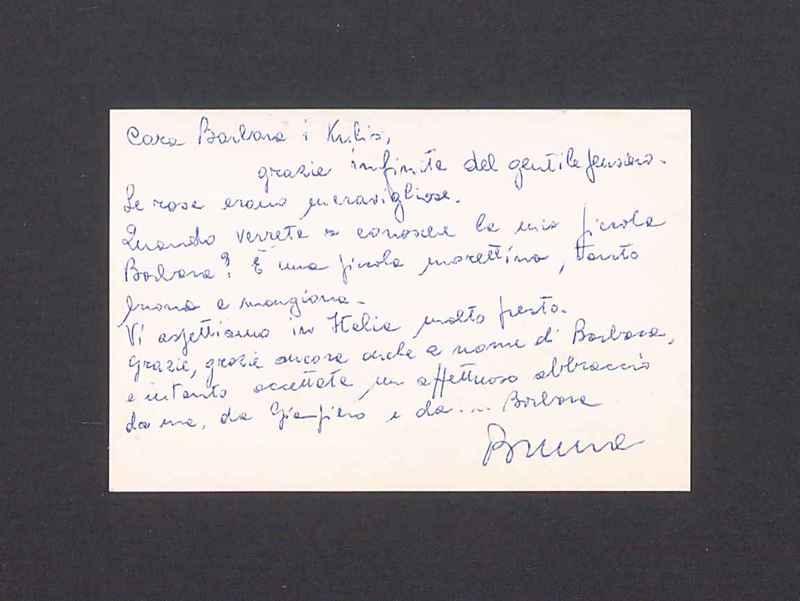 Cara Barbara i
grazie infinite del gentile pensiero.
Le rose erano meravigliose.
Quando verrete a conoscere la mia piccola
Barbara? È una piccola morettina, tanto
buona e mangiona.
Vi aspettiamo in Italia molto presto.
Grazie, grazie ancora anche a nome di Barbara,
e intanto accettate un affettuoso abbraccio
da me, da Giampiero e da ... Barbara
Bruna